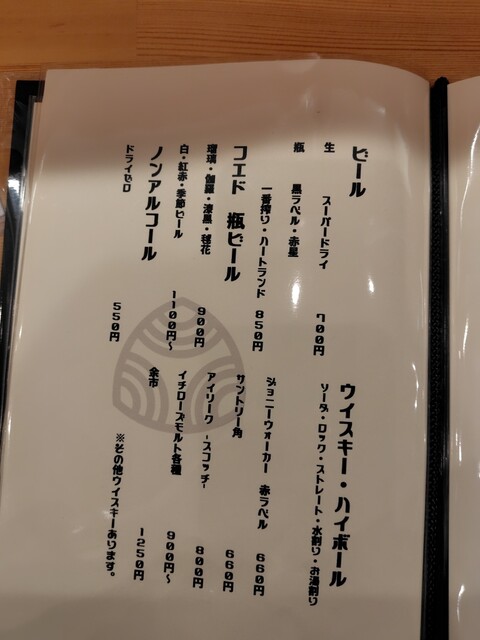 ビール
生 スーパードライ 700円
瓶 黒ラベル・赤星
一番搾り・ハートランド 850円
コエド 瓶ビール
瑠璃・伽羅・漆黒・毬花 900円
白・紅赤・季節ビール 1100円〜
ノンアルコール
ドライゼロ 550円
ウイスキー・ハイボール
ソーダ・ロック・ストレート・水割り・お湯割り
ジョニーウォーカー 赤ラベル 660円
サントリー角 660円
アイリーク -スコッチ- 800円
イチローズモルト各種 900円〜
余市 1250円
※その他ウイスキーあります。